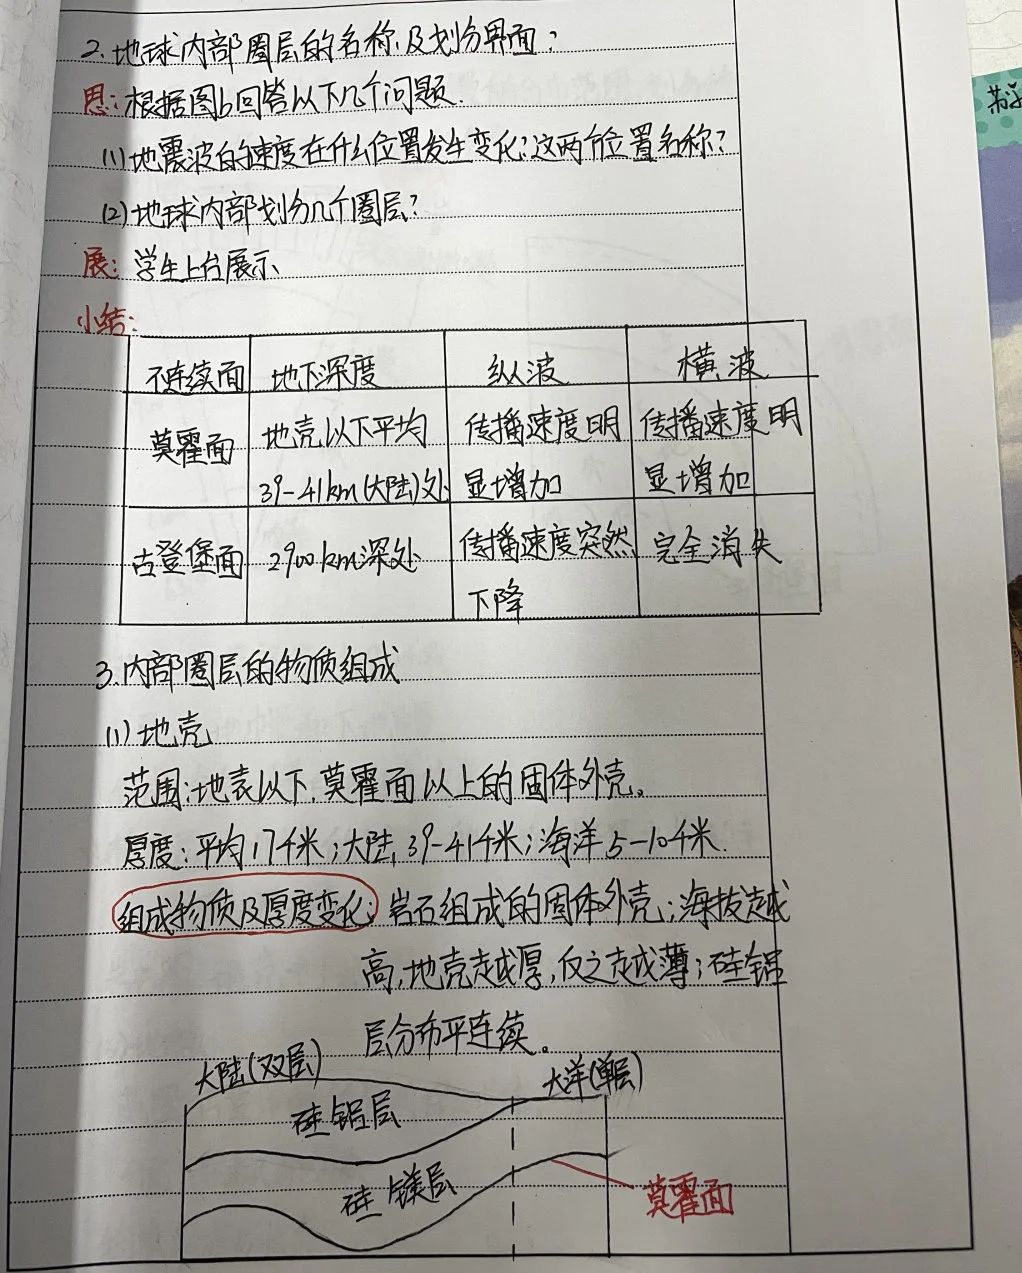 2.地球内部圈层的名称及划分界面?
思:根据图b回答以下几个问题.
(1)地震波的速度在什么位置发生变化?这两个位置名称?
(2)地球内部划分几个圈层?
展:学生上台展示、
小结:
不连续面 地下深度 纵波 横波
莫霍面 地壳以下平均 传播速度明 传播速度明
39-41km(大陆)处 显增加 显增加
古登堡面 2900km深处 传播速度突然 完全消失
下降
3.内部圈层的物质组成
(1)地壳
范围:地表以下.莫霍面以上的固体外壳。
厚度:平均17千米;大陆,39-41千米;海洋5-10千米.
组成物质及厚度变化:岩石组成的固体外壳;海拔越
高,地壳越厚,反之越薄;硅铝
层分布平连续。
大陆(双层) 大洋(单层)
硅铝层
硅镁层
莫霍面